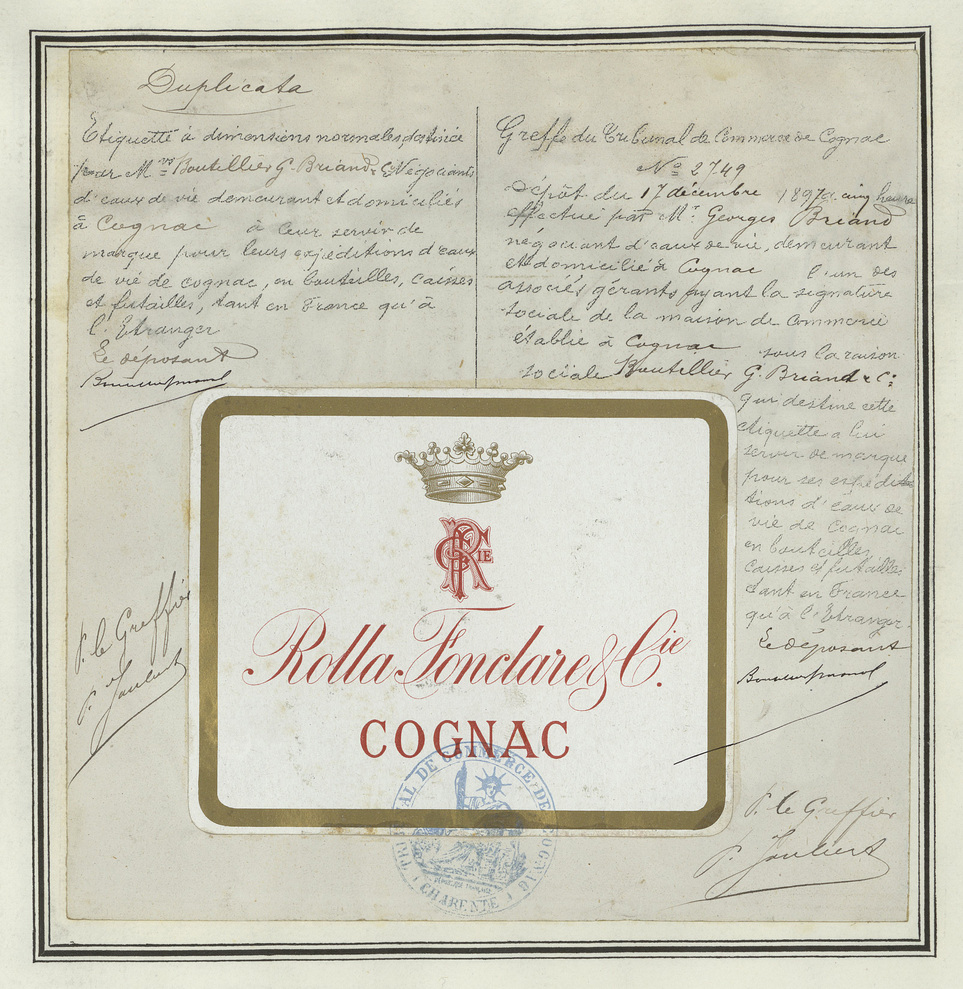 Duplicata
Etiquette à dimensions normales destinée
par Mrs Boutellier G. Briand & Cie Négociants
d'eaux de vie demeurant et domiciliés
à Cognac à leur servir de
marque pour leurs expéditions d'eaux
de vie de cognac, en bouteilles, caisses
et futailles, tant en France qu'à
l'Etranger
Le déposant
Greffe du Tribunal de Commerce de Cognac
No 2749
Dépôt du 17 décembre 1897 à cinq heures
effectué par Mr. Georges Briand
négociant d'eaux de vie, demeurant
et domicilié à Cognac l'un des
associés gérants ayant la signature
sociale de la maison de Commerce
établie à Cognac sous la raison
sociale Boutellier G. Briand & Cie
qui destine cette
étiquette à lui
servir de marque
pour ses expédi
tions d'eaux de
vie de Cognac
en bouteilles
caisses et futailles
tant en France
qu'à l'Etranger.
Le déposant
P. le Greffier
P. le Greffier
RF & CIE
Rolla Fonclare & Cie.
COGNAC
TRIBUNAL DE COMMERCE DE COGNAC
RÉPUBLIQUE FRANÇAISE
(CHARENTE)